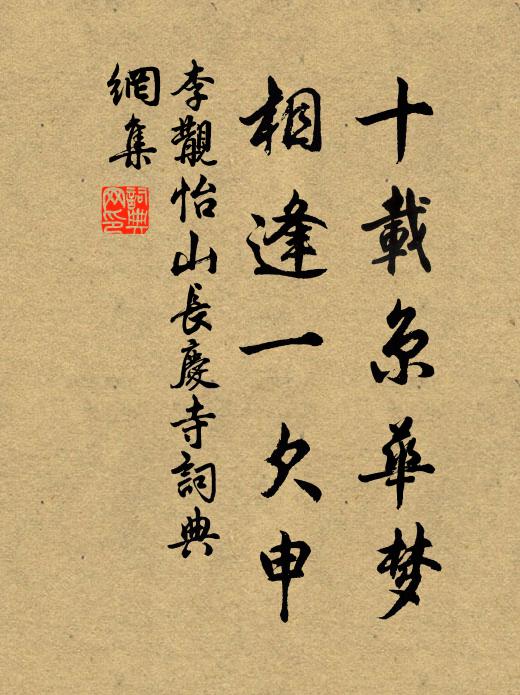 十載京華梦
相逢一欠申
李覯怡山長慶寺詞典
網集
詞典
网印